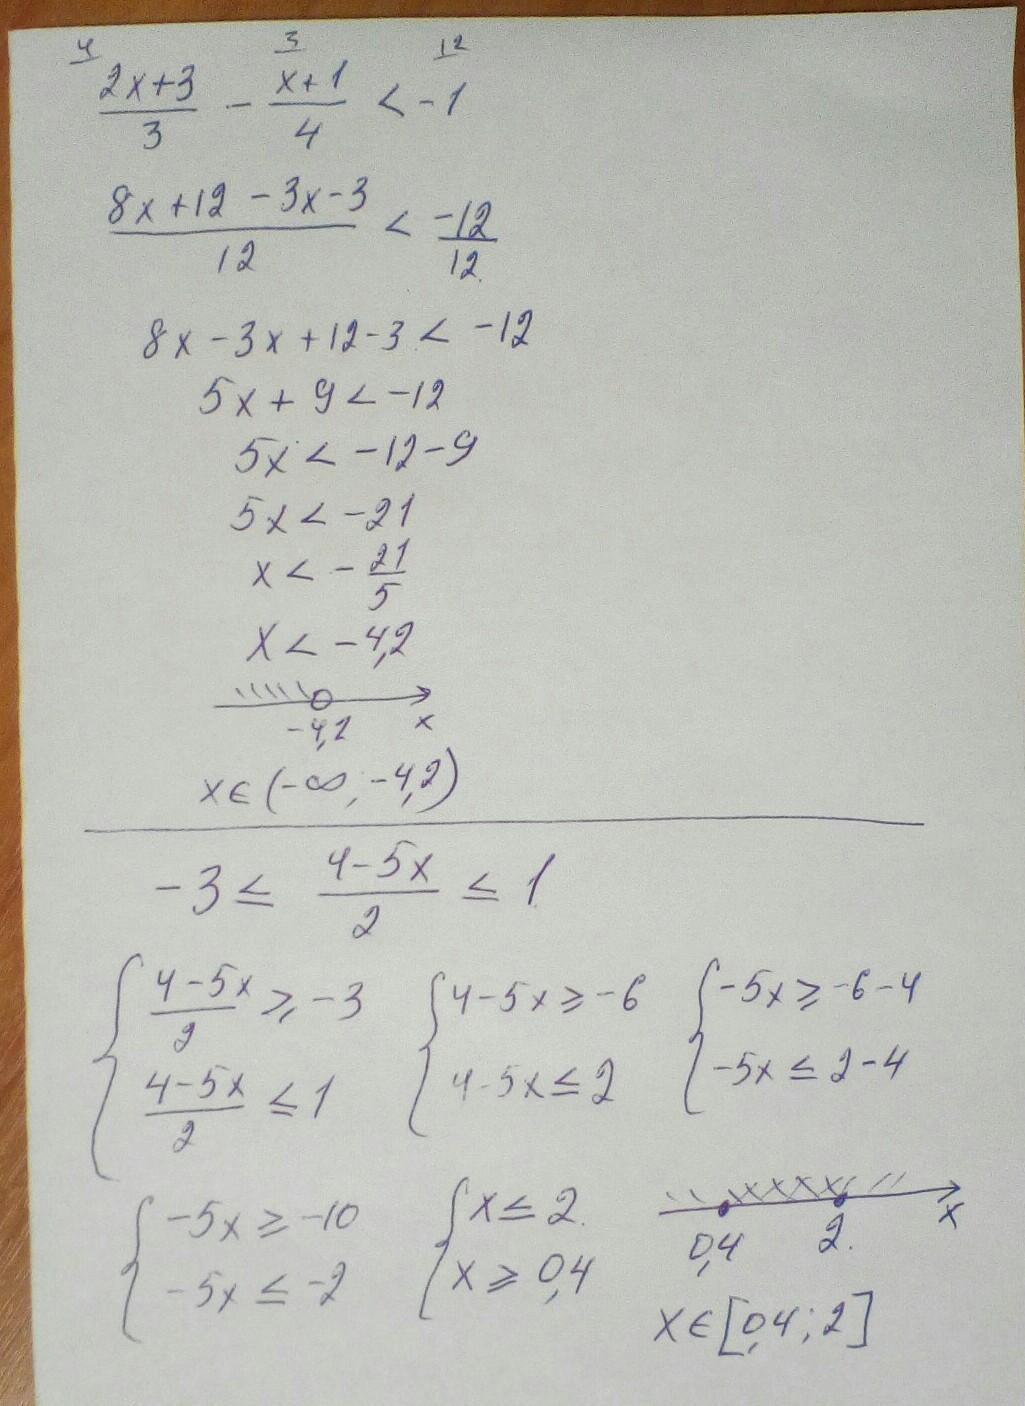 4 3 12
(2x+3)/3 - (x+1)/4 < -1
(8x+12-3x-3)/12 < -12/12
8x-3x+12-3 < -12
5x+9 < -12
5x < -12-9
5x < -21
x < -21/5
x < -4,2
-4,2 x
x∈(-∞; -4,2)
-3 ≤ (4-5x)/2 ≤ 1
{ (4-5x)/2 ≥ -3 { 4-5x ≥ -6 { -5x ≥ -6-4
(4-5x)/2 ≤ 1 4-5x ≤ 2 -5x ≤ 2-4
{ -5x ≥ -10 { x ≤ 2
-5x ≤ -2 x ≥ 0,4
0,4 2 x
x∈[0,4; 2]